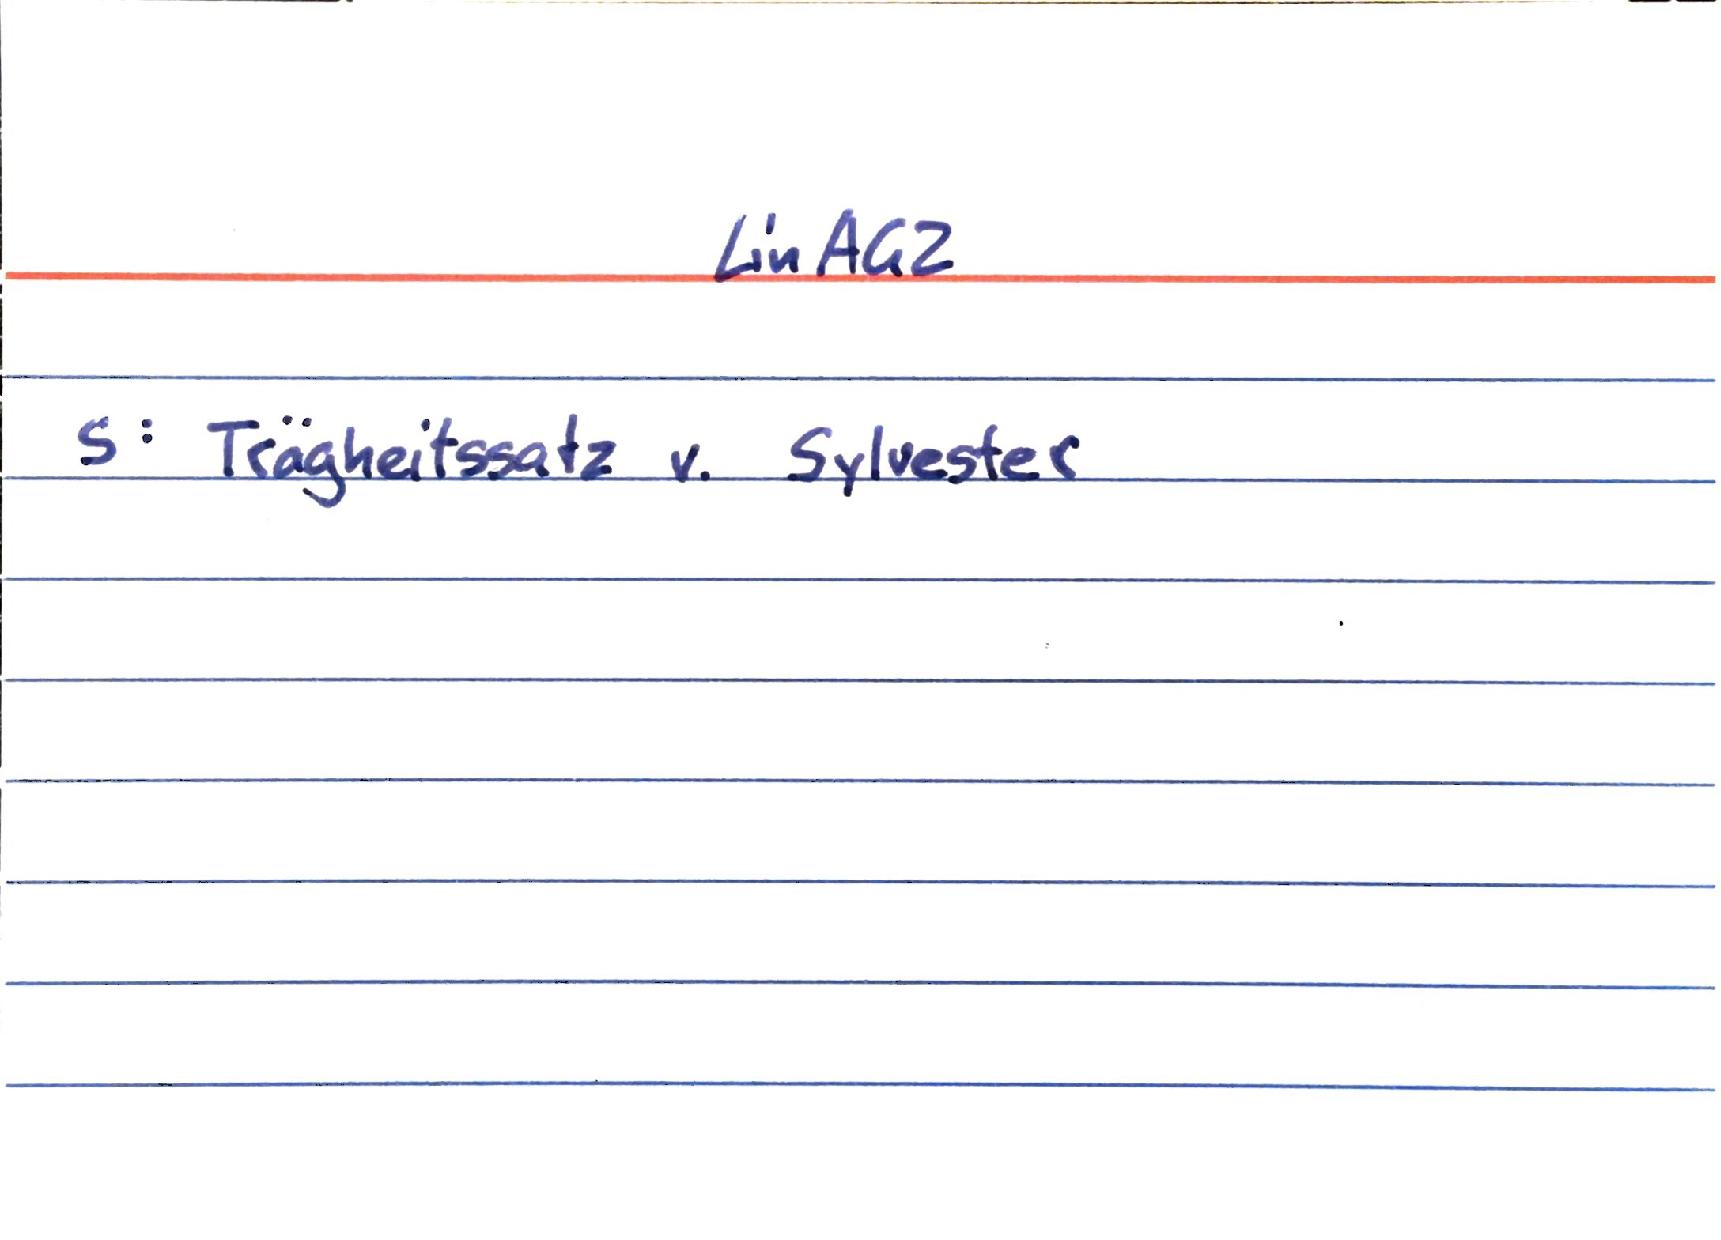 LinAG2
S: Trägheitssatz v. Sylvester